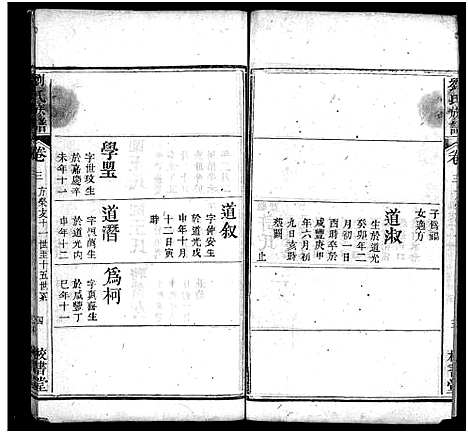 劉氏族譜
卷三
子爲福
女適方
道淑
生於道光
癸卯年二
月初一日
酉時卒於
咸豐庚申
年六月初
九日亥時
葬闕
止
道叙
字仲安生
於道光戊
申年十月
十二日寅
時
學聖
字世玟生
於嘉慶辛
未年十一
道潛
於道光丙
申年十二
爲柯
字與喬生
於咸豐丁
巳年十一
劉氏族譜
卷三
十一世至十五世系
四
校書堂